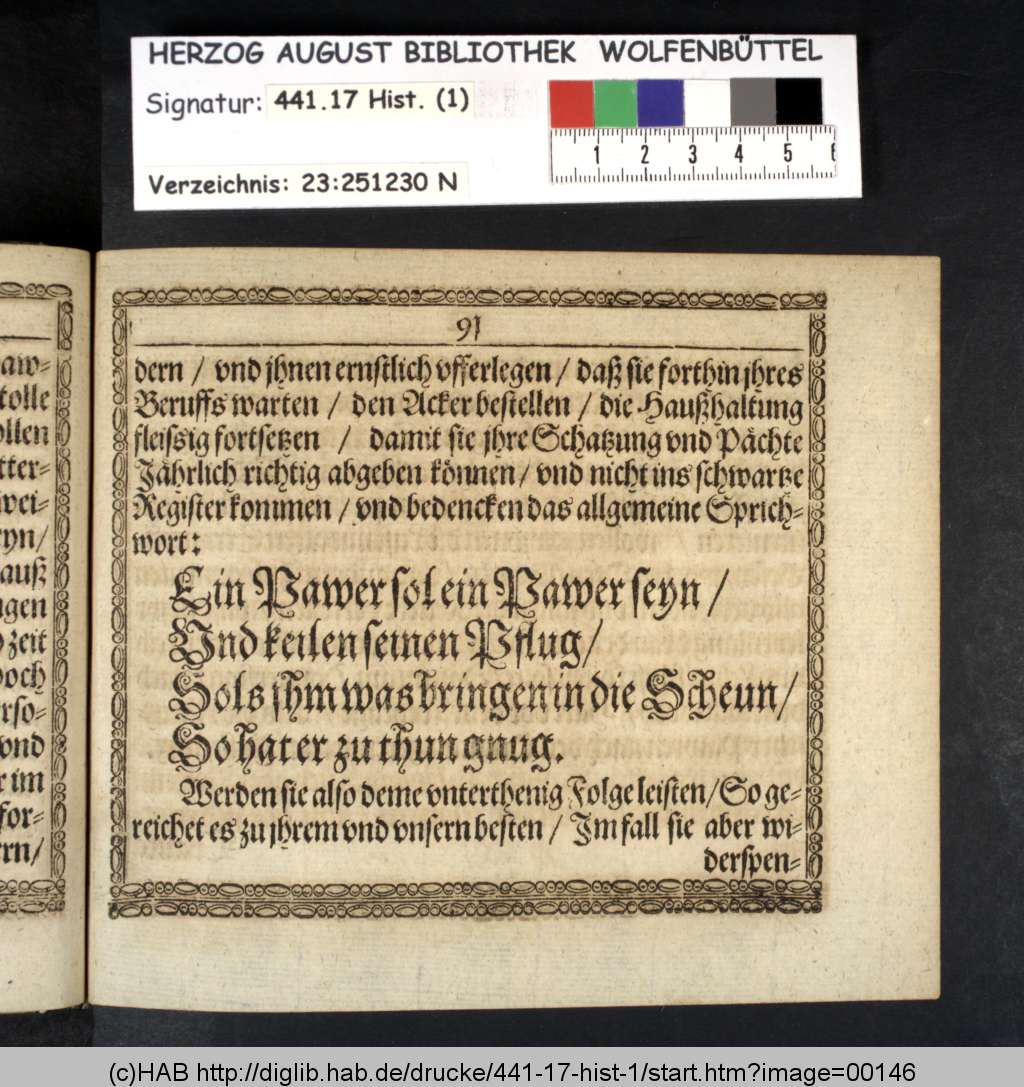 HERZOG AUGUST BIBLIOTHEK WOLFENBÜTTEL
Signatur: 441.17 Hist. (1)
1 2 3 4 5 6
Verzeichnis: 23:251230 N
aw-
tolle
ollen
tter-
wei-
yn/
auß
ngen
zeit
och
rso-
vnd
r im
for-
rn/
91
dern / vnd jhnen ernstlich vfferlegen / daß sie forthin jhres
Beruffs warten / den Acker bestellen / die Haußhaltung
fleissig fortsetzen / damit sie jhre Schatzung vnd Pächte
Jährlich richtig abgeben können / vnd nicht ins schwartze
Register kommen / vnd bedencken das allgemeine Sprich-
wort:
Ein Pawer sol ein Pawer seyn /
Vnd keilen seinen Pflug /
Sols jhm was bringen in die Scheun /
So hat er zu thun gnug.
Werden sie also deme vnterthenig Folge leisten / So ge-
reichet es zu jhrem vnd vnsern besten / Im fall sie aber wi-
derspen-
(c)HAB http://diglib.hab.de/drucke/441-17-hist-1/start.htm?image=00146